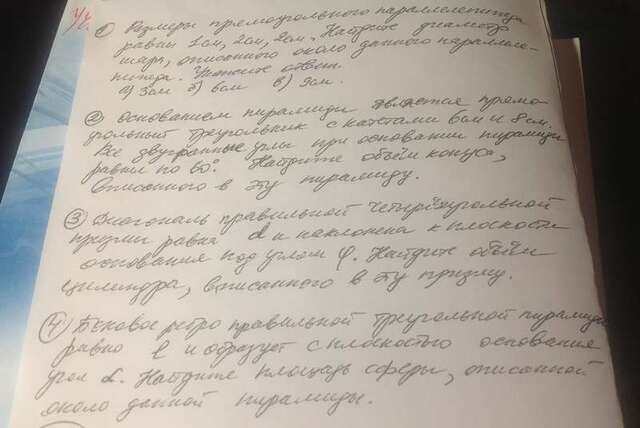 ① Размеры прямоугольного параллелепипеда
равны 1см, 2см, 2см. Найдите диаметр
шара, описанного около данного параллеле-
пипеда. Укажите ответ.
а) 3см б) 6см в) 9см.
② Основанием пирамиды является прямо-
угольный треугольник с катетами 6см и 8см.
Все двугранные углы при основании пирамиды
равны по 60°. Найдите объём конуса,
вписанного в эту пирамиду.
③ Диагональ правильной четырёхугольной
призмы равна d и наклонена к плоскости
основания под углом φ. Найдите объём
цилиндра, вписанного в эту призму.
④ Боковое ребро правильной треугольной пирамиды
равно l и образует с плоскостью основания
угол α. Найдите площадь сферы, описанной
около данной пирамиды.